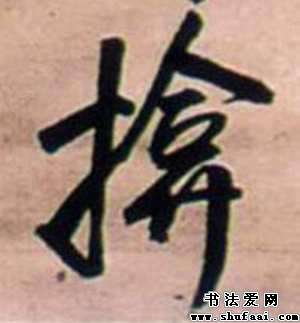 揜
书法爱网
www.shufaai.com